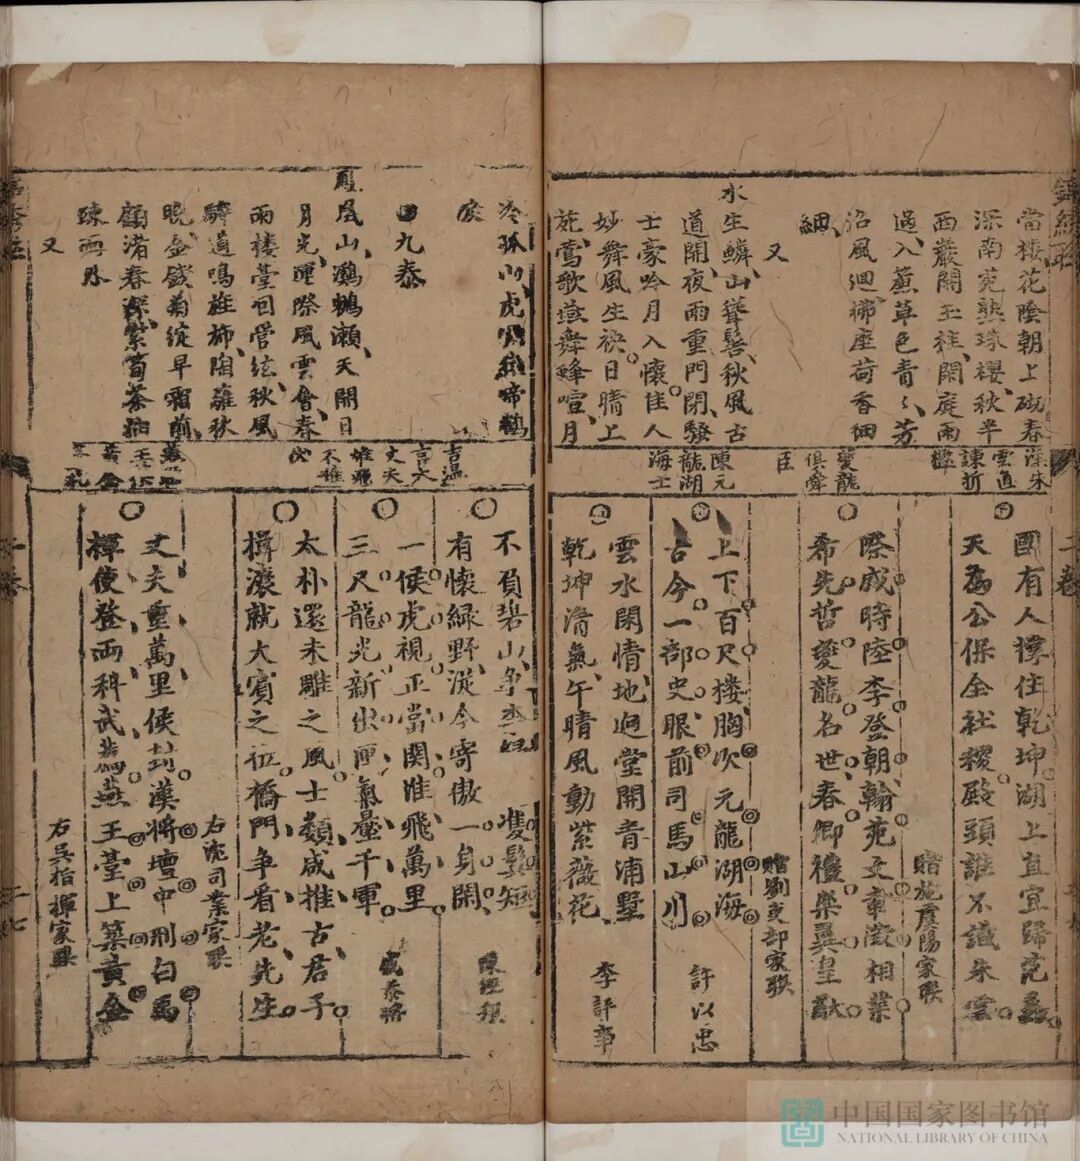 當樓花陰朝上砌春
深南苑熟珠櫻秋半
西巖開玉桂閑庭雨
過入蕉草色青〻芳
沼風迴拂座荷香個
細
又
水生鱗山聳髻秋風古
道開夜雨重門閉騷
士豪吟月入懷佳人
妙舞風生袂日晴上
苑鶯歌燕舞蜂喧月
冷孤山虎嘯猿啼鶴
唳
九泰
鳳凰山鸂鶒瀨天開日
月光運際風雲會春
雨樓臺回管絃秋風
驛道鳴旌旆陶籬秋
晚金盛菊綻早霜前
顧渚春深紫筍茶抽
疎雨外
又
深朱
雲直
諫折
檻
夔龍
俱舜
臣
陳元
龍湖
海士
吉溫
言大
丈夫
雄飛
不雌
伏
二卷
國有人擇住乾坤湖上直宜歸范蠡
天為公保全社稷殿頭誰不識朱雲
贈施慶陽家聯
際成時陸李登朝翰苑文章徵相業
希先哲夔龍名世春卿禮樂翼皇猷
贈劉吏部家聯
上下百尺樓胸次元龍湖海
古今一部史眼前司馬山川
許以忠
雲水閑情地迥堂開青浦墅
乾坤清氣午晴風動紫薇花
李評事
不負碧山爭李
雙鬢短
有懷綠野從今寄傲一身閑
陳經
一侯虎視正當關准飛萬里
三尺龍光新出匣氣疊千軍
戚泰將
太朴還未雕之風士類咸推古君子
揖滾就大賓之位橋門爭看老先生
右沈司業家聯
丈夫重萬里侯封漢將壇中刑白馬
揮使登兩科武薦燕王臺上築黃金
右吳指揮家聯
中国国家图书馆
NATIONAL LIBRARY OF CHINA